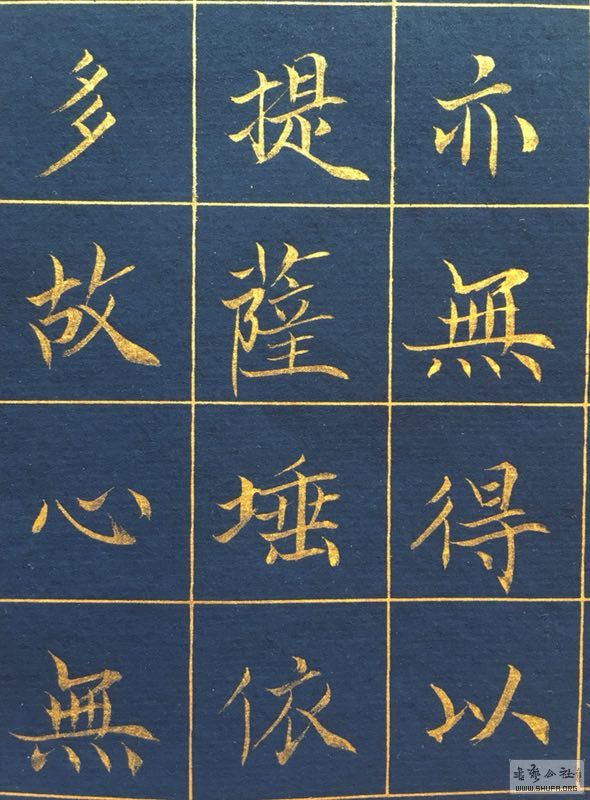 亦無得以
提薩埵依
多故心無
書藝公社
WWW.SHUFA.ORG